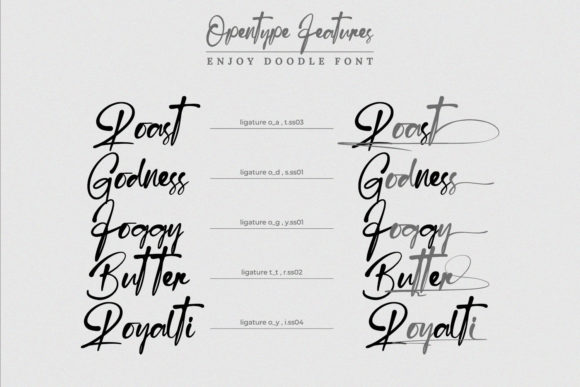 Opentype Features
ENJOY DOODLE FONT
Roast ligature o_a , t.ss03 Roast
Godness ligature o_d , s.ss01 Godness
Foggy ligature o_g , y.ss01 Foggy
Butter ligature t_t , r.ss02 Butter
Royalti ligature o_y , i.ss04 Royalti